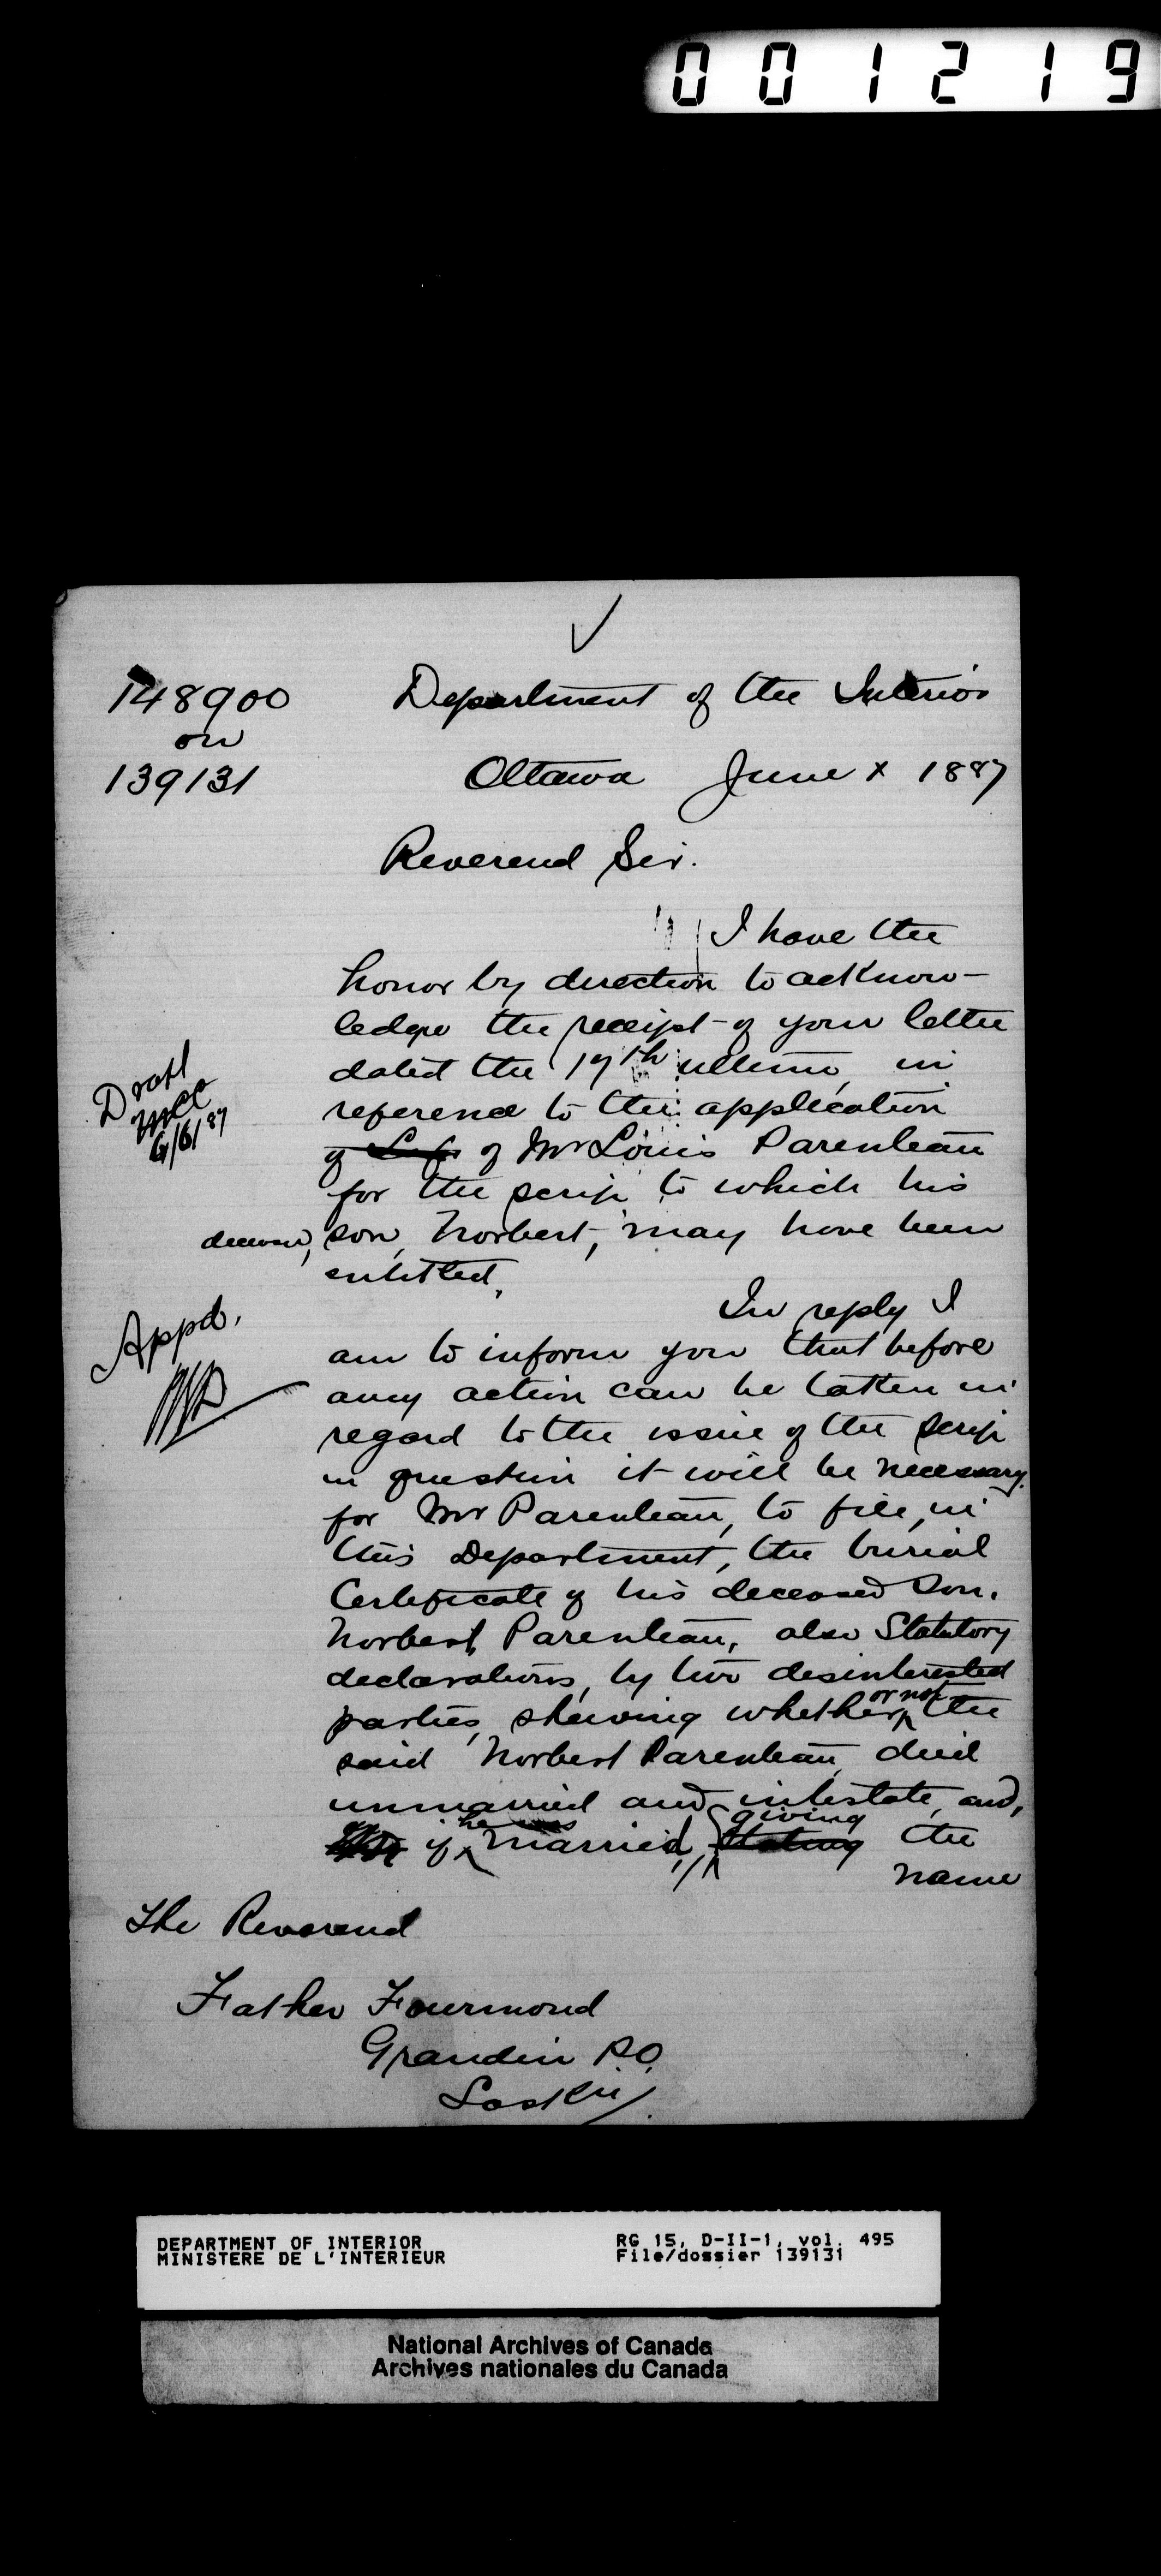 001219
148900
on
139131
Department of the Interior
Ottawa June x 1887
Reverend Sir.
I have the
honor by direction to acknow-
ledge the receipt of your letter
dated the 17th ultimo, in
reference to the application
of of Mr Louis Parenteau
for the scrip to which his
deceased, son, Norbert, may have been
entitled.
Draft
6/6/87
Appd.
In reply I
am to inform you that before
any action can be taken in
regard to the issue of the scrip
in question it will be necessary
for Mr Parenteau, to file, in
this Department, the burial
Certificate of his deceased son.
Norbert Parenteau, also Statutory
declarations, by two desinterested
parties, shewing whether or not the
said Norbert Parenteau died
unmarried and intestate, and,
if he was married, giving stating the
name
The Reverend
Father Fourmond
Grandin P.O.
Sask
DEPARTMENT OF INTERIOR
MINISTERE DE L'INTERIEUR
RG 15, D-II-1, vol. 495
File/dossier 139131
National Archives of Canada
Archives nationales du Canada